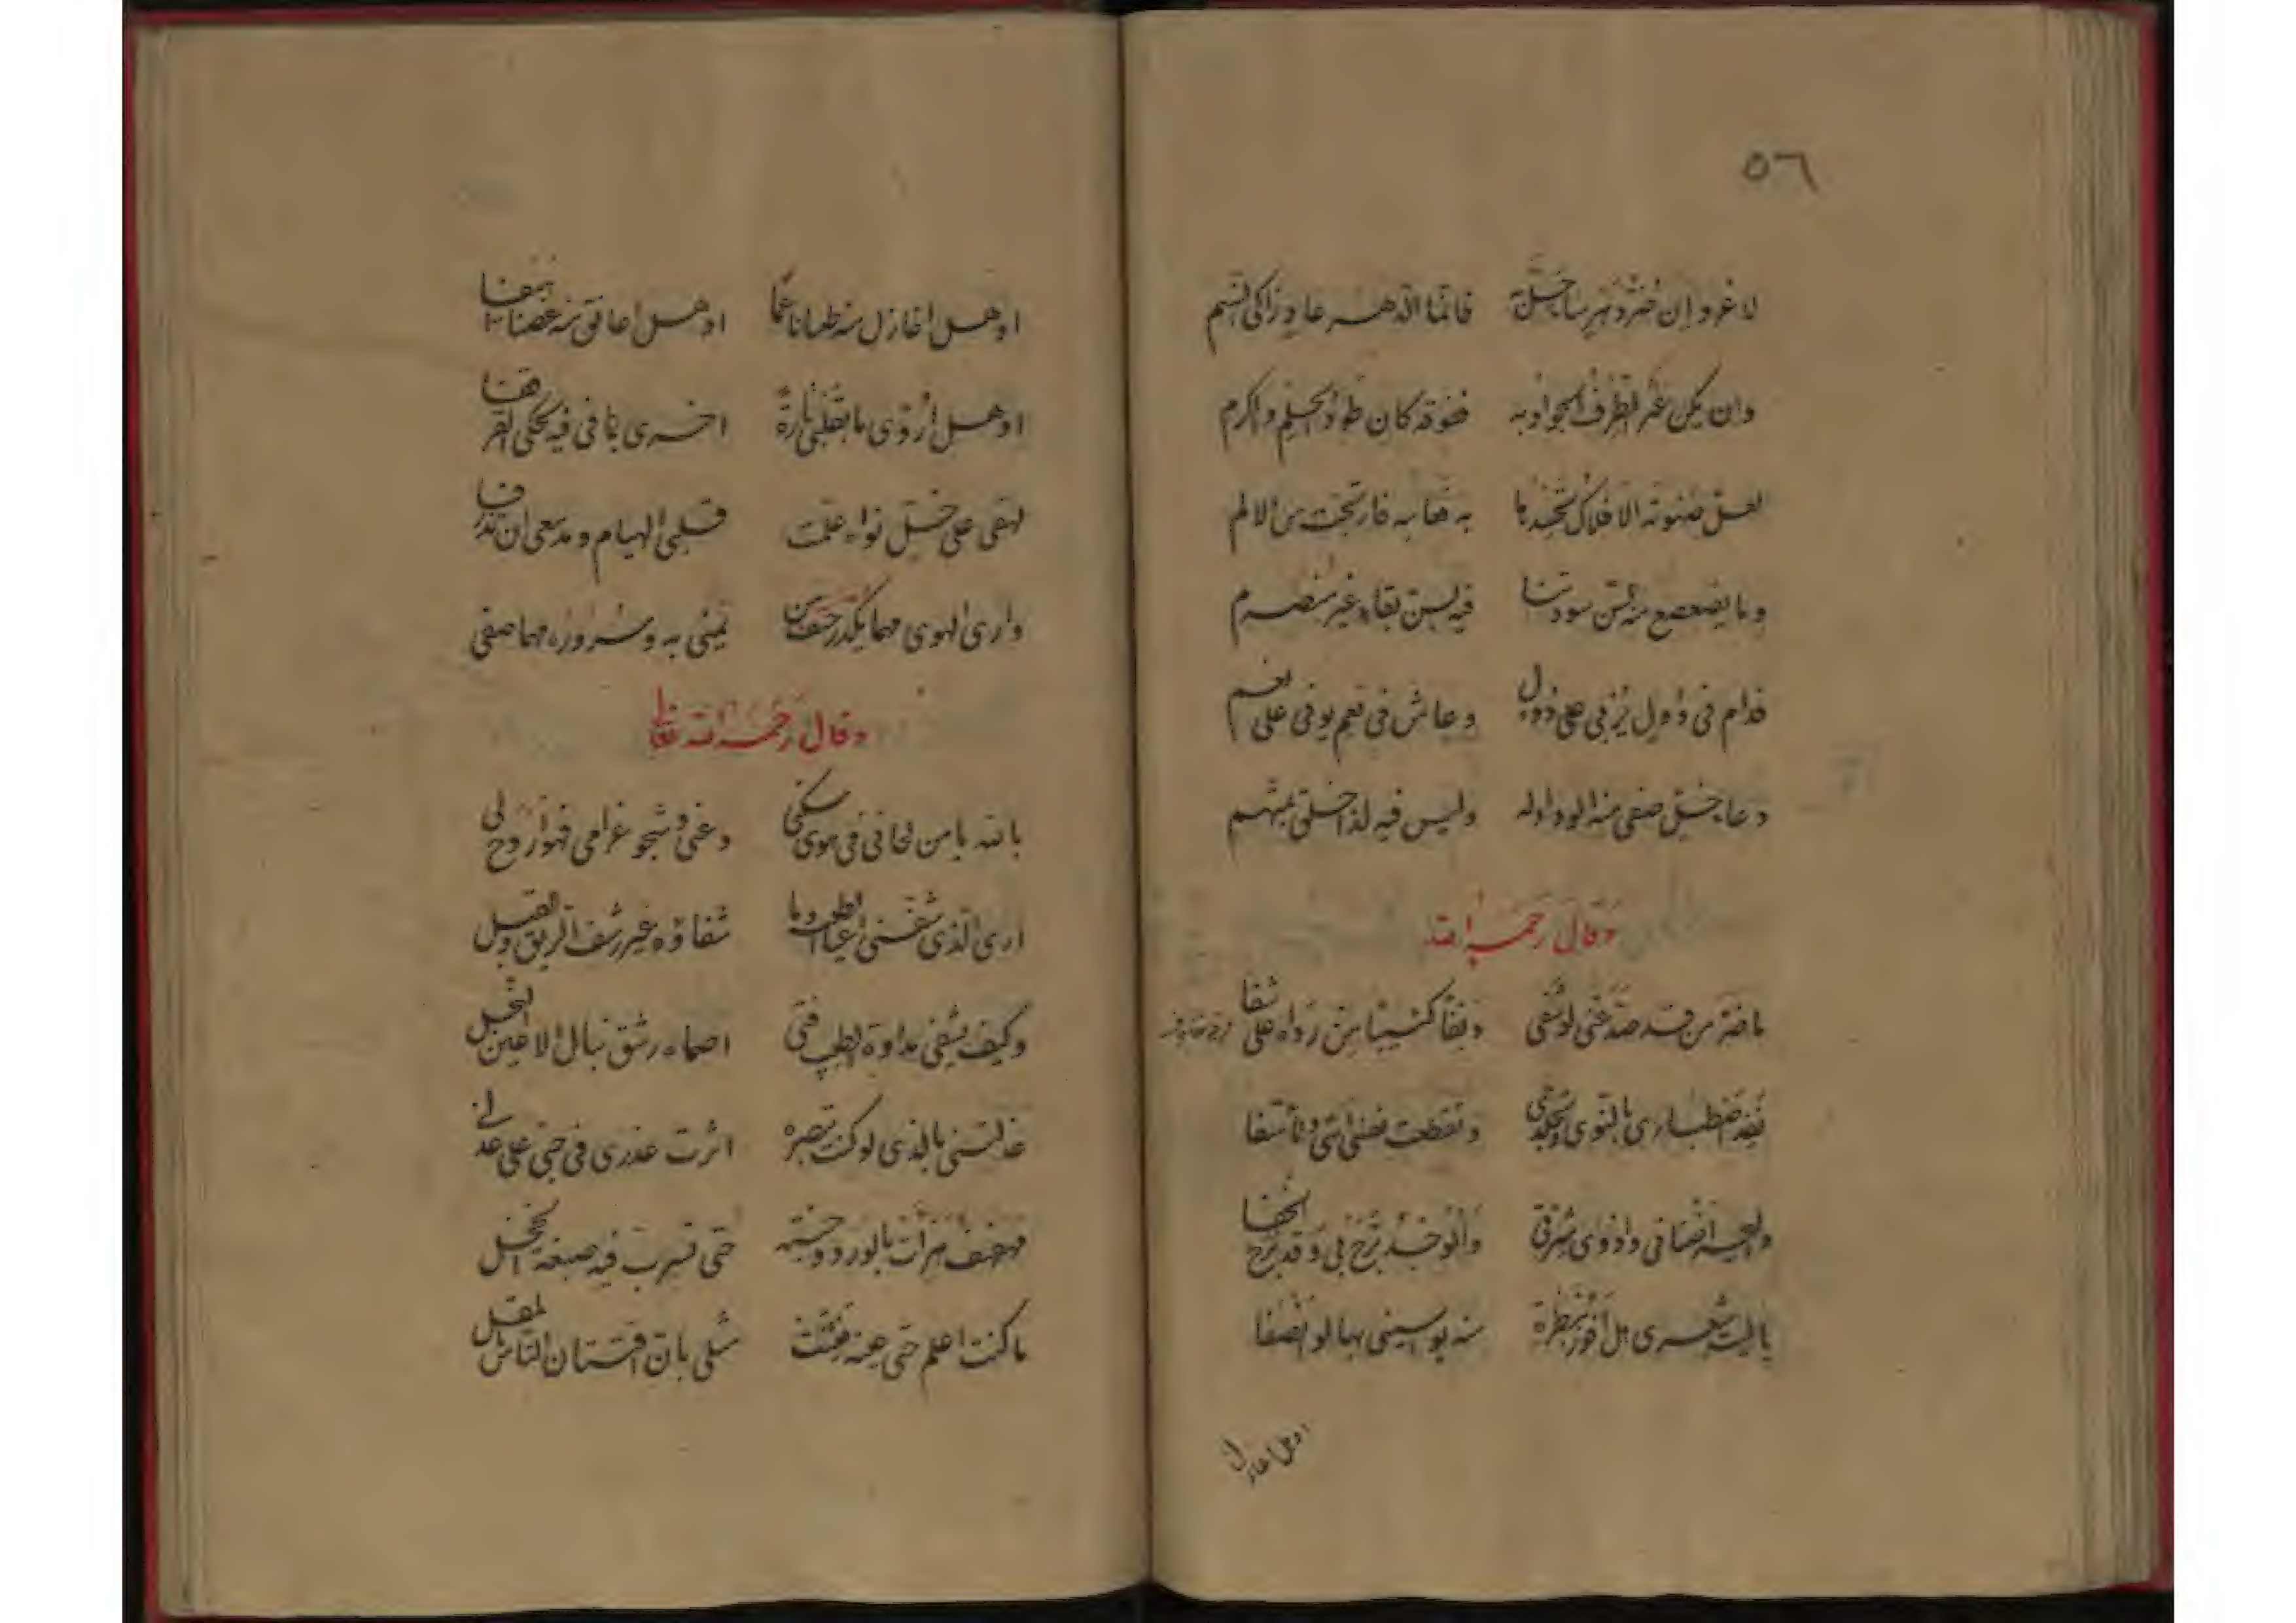 ٥٦
لا غرو إن فانما الدهر عاد زاكي الشيم
وان يكن عثر الطرف الجواد به ففوقه كان طود الحلم والكرم
لعل الافلاك به فارتجت من الالم
وما يضعضع منه فيه لسن بقاء غير منصرم
فدام في دول تربي على دول وعاش في نعم يوفي على نعم
دعا خل صفى منه الوداد له وليس فيه لذا خلق بمتهم
وقال رحمه الله
ما ضر من قد صد عني لو شفى دنفا كئيبا من رداه على شفا
نفد اصطباري بالنوى وتجلدي وتقطعت نفسي اسى وتأسفا
والوجد برح بي وقد برح الخفا
يا ليت شعري هل افوز بنظرة منه يواسيني بها لو انصفا
او هل اغازل
او هل اغازل منه او هل اعانق منه غصنا اهيفا
او هل اروي ما بقلبي تارة اخرى بما في فيه يحكي القرقفا
لهفي على خل نواه علمت قلبي الهيام ومدمعي ان تذرفا
وارى الهوى مهما يكدر يمني به وسروره مهما صفى
وقال رحمه الله تعالى
بالله يا من لحاني في هوى سكني دعني وشجو غرامي فهو اروح لي
ارى الذي شفني اعيا الطبيب وما شفاؤه غير رشف الريق والقبل
وكيف يشفي مداواة الطبيب فتى اصماه رشق نبال الاعين النجل
عذلتني بالذي لو كنت تبصره اثرت عذري في حبي على عذلي
مهفهف بالورد وجنته حتى تسربت فيه صبغة الخجل
ما كنت اعلم حتى عينه فتنت مثلي بان افتتان الناس بالمقل